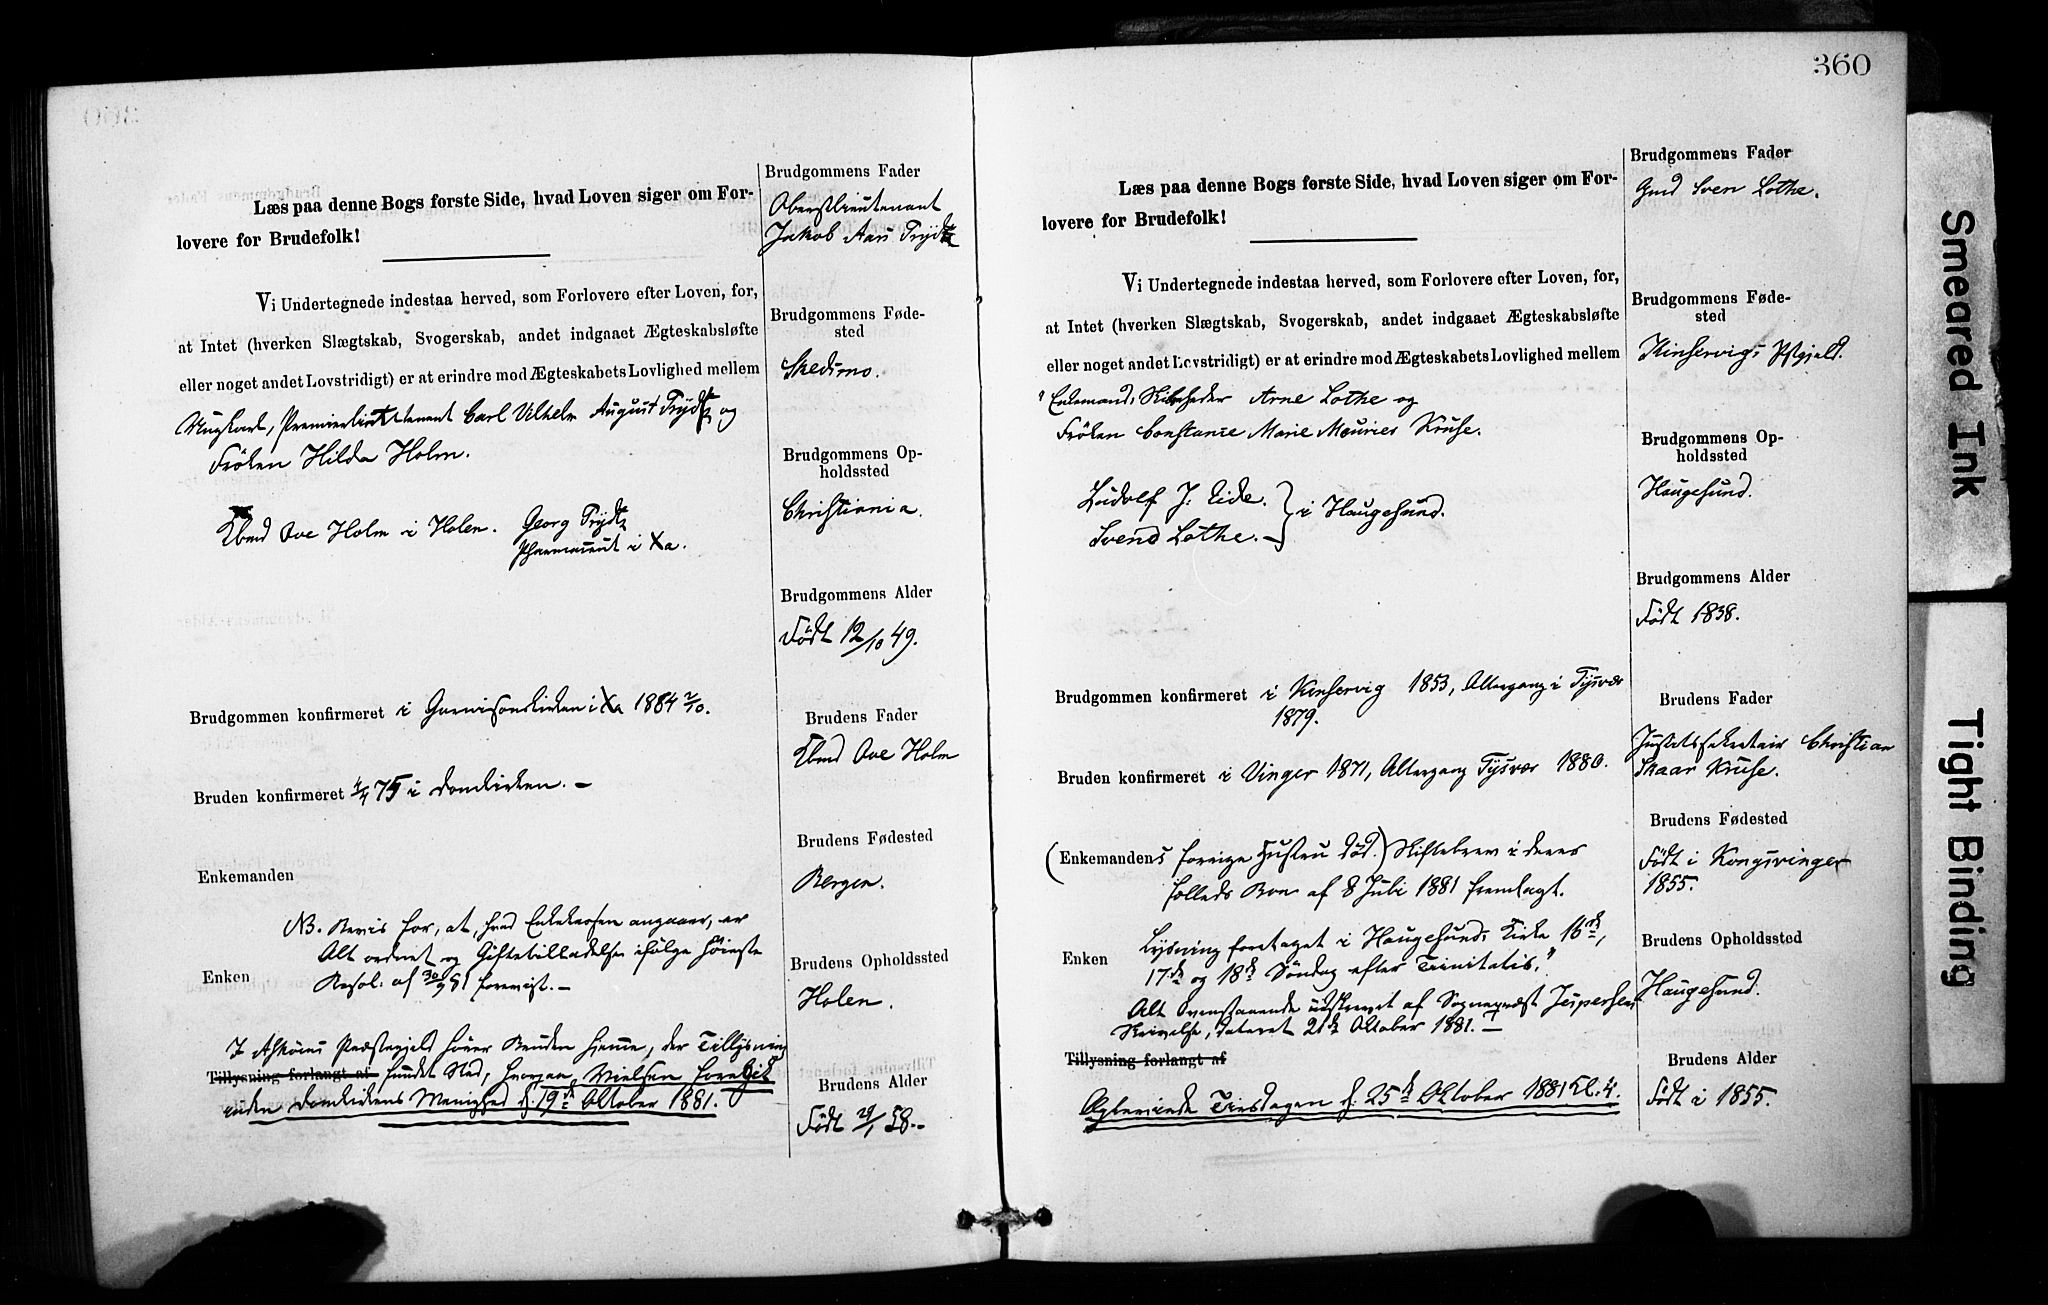 Læs paa denne Bogs første Side, hvad Loven siger om For-
lovere for Brudefolk!
Vi Undertegnede indestaa herved, som Forlovere efter Loven, for,
at Intet (hverken Slægtskab, Svogerskab, andet indgaaet Ægteskabsløfte
eller noget andet Lovstridigt) er at erindre mod Ægteskabets Lovlighed mellem
Ungkarl, Premierlieutenant Carl Vilhelm August Trydtz og
Fröken Hilda Holm.
Kbmd Ove Holm i Holen.
Georg Trydtz
Pharmaceut i Xa.
Brudgommen konfirmeret i Garnisonskirken i Xa 1864 2/10.
Bruden konfirmeret 4/4 75 i Domkirken. –
Enkemanden
NB. Bevis for, at, hvad Enkekassen angaaer, er
Alt ordnet og Giftetilladelse ifölge höieste
Enken Resol: af 30/9 81 forevist. –
I Asköens Præstegjeld hörer Bruden hjemme, der Tillysning
Tillysning forlangt af fundet Sted, hvorpaa Vielsen foregik
inden Domkirkens Menighed d. 19de Oktober 1881.
Brudgommens Fader
Oberstlieutenant
Jakob Aars Trydtz
Brudgommens Føde-
sted
Skedsmo.
Brudgommens Op-
holdssted
Christiania.
Brudgommens Alder
Födt 12/10 49.
Brudens Fader
Kbmd Ove Holm
Brudens Fødested
Bergen.
Brudens Opholdssted
Holen.
Brudens Alder
Födt 29/1 58. –
360
Læs paa denne Bogs første Side, hvad Loven siger om For-
lovere for Brudefolk!
Vi Undertegnede indestaa herved, som Forlovere efter Loven, for,
at Intet (hverken Slægtskab, Svogerskab, andet indgaaet Ægteskabsløfte
eller noget andet Lovstridigt) er at erindre mod Ægteskabets Lovlighed mellem
"Enkemand, Skibsreder Arne Lothe og
Fröken Constance Marie Mauries Kruse.
Ludolf J. Eide.
Svend Lothe. } i Haugesund.
Brudgommen konfirmeret i Kinservig 1853, Altergang i Tysvær
1879.
Bruden konfirmeret i Vinger 1871, Altergang Tysvær 1880.
(Enkemandens forrige Hustru död.) Skiftebrev i deres
fælleds Bo af 8 Juli 1881 fremlagt.
Enken Lysning foretaget i Haugesunds Kirke 16de,
17de og 18de Söndag efter Trinitatis."
Alt Ovenstaaende udskrevet af Sognepræst Jespersens
Skrivelse, dateret 21de Oktober 1881. –
Tillysning forlangt af
Ægteviede Tirsdagen d. 25de Oktober 1881 Kl. 4.
Brudgommens Fader
Gmd Sven Lothe.
Brudgommens Føde-
sted
Kinservigs Pstgjeld.
Brudgommens Op-
holdssted
Haugesund.
Brudgommens Alder
Födt 1838.
Brudens Fader
Justitssekretair Christian
Skaar Kruse.
Brudens Fødested
Födt i Kongsvinger
1855.
Brudens Opholdssted
Haugesund.
Brudens Alder
Födt i 1855.
Smeared Ink
Tight Binding